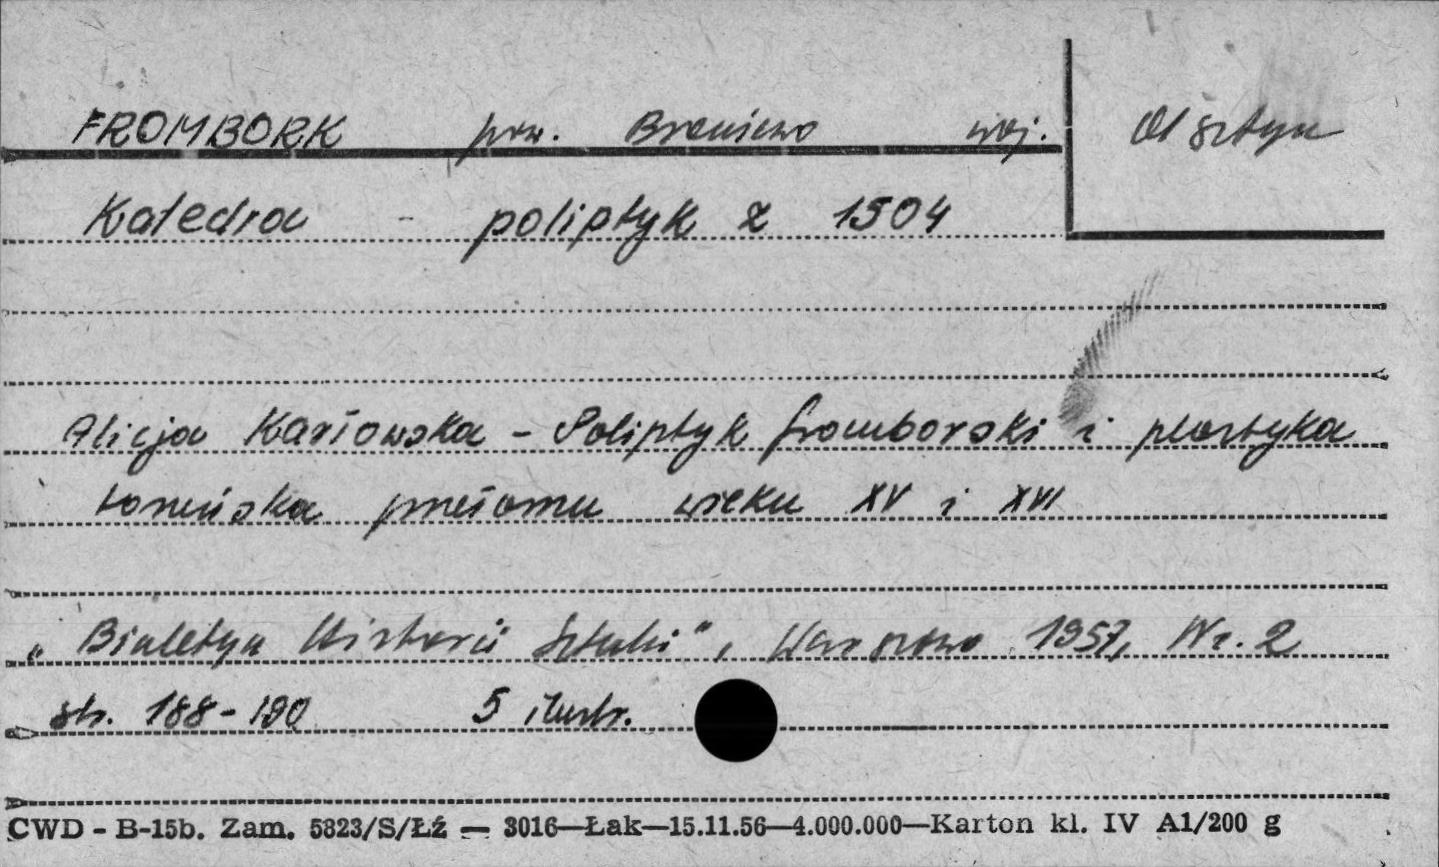 FROMBORK pow. Braniewo woj. Olsztyn
Katedra - poliptyk z 1504
Alicja Karłowska - Poliptyk fromborski i plastyka
toruńska przełomu wieku XV i XVI
„Biuletyn Historii Sztuki", Warszawa 1957, Nr. 2
str. 188-190 5 ilustr.
CWD - B-15b. Zam. 5823/S/Łź — 3016—Łak—15.11.56—4.000.000—Karton kl. IV A1/200 g